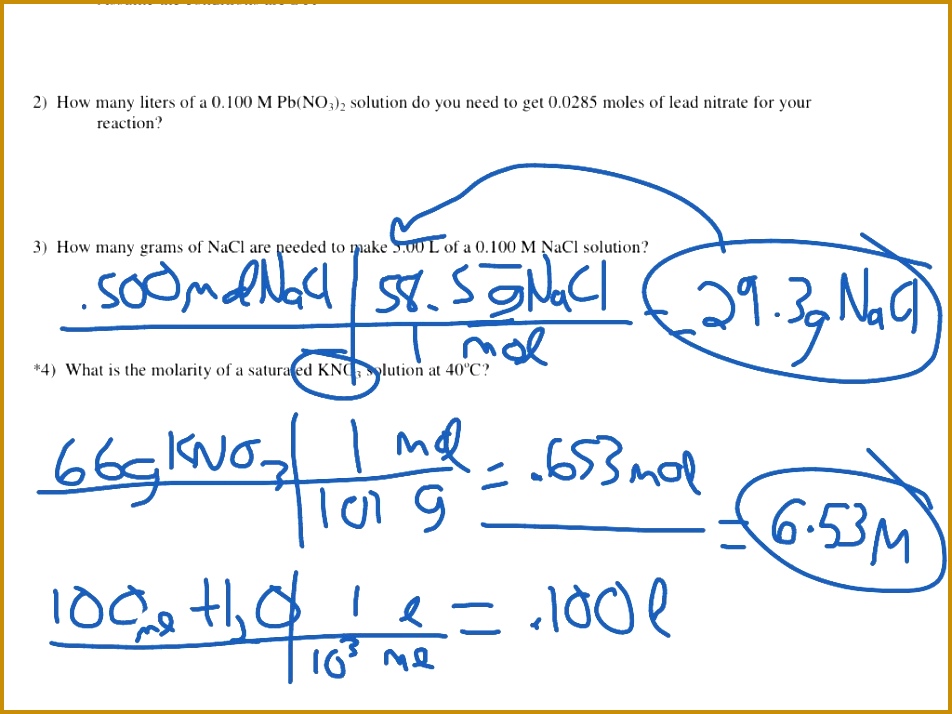 2) How many liters of a 0.100 M Pb(NO₃)₂ solution do you need to get 0.0285 moles of lead nitrate for your
reaction?
3) How many grams of NaCl are needed to make 5.00 L of a 0.100 M NaCl solution?
.500 mol NaCl | 58.5 g NaCl = 29.3g NaCl
1 mol
*4) What is the molarity of a saturated KNO₃ solution at 40°C?
66g KNO₃ | 1 mol = .653 mol
101 g
= 6.53 M
100 ml H₂O | 1 l = .100 l
10³ ml